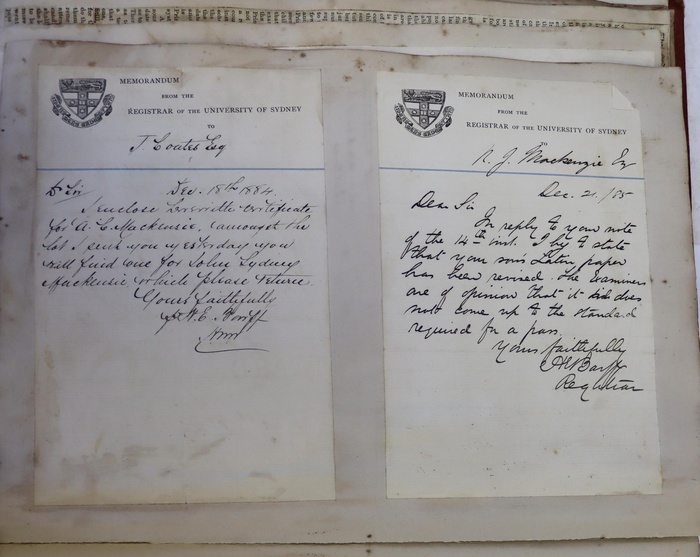 MEMORANDUM
FROM THE
REGISTRAR OF THE UNIVERSITY OF SYDNEY
TO
J Coates Esq
Dec. 18th 1884.
Dr Sir
I enclose certificate
for A. C. Mackenzie, amongst the
lot I sent you yesterday you
will find one for John Sydney
Mackenzie which please return
Yours faithfully
MEMORANDUM
FROM THE
REGISTRAR OF THE UNIVERSITY OF SYDNEY
TO
N. J. Mackenzie Esq
Dec. 21./85
Dear Sir
In reply to your note
of the 14th inst. I beg to state
that your sons Latin paper
has been revised. The examiners
are of opinion that it does
not come up to the standard
required for a pass.
Yours faithfully
HEBarff
Registrar